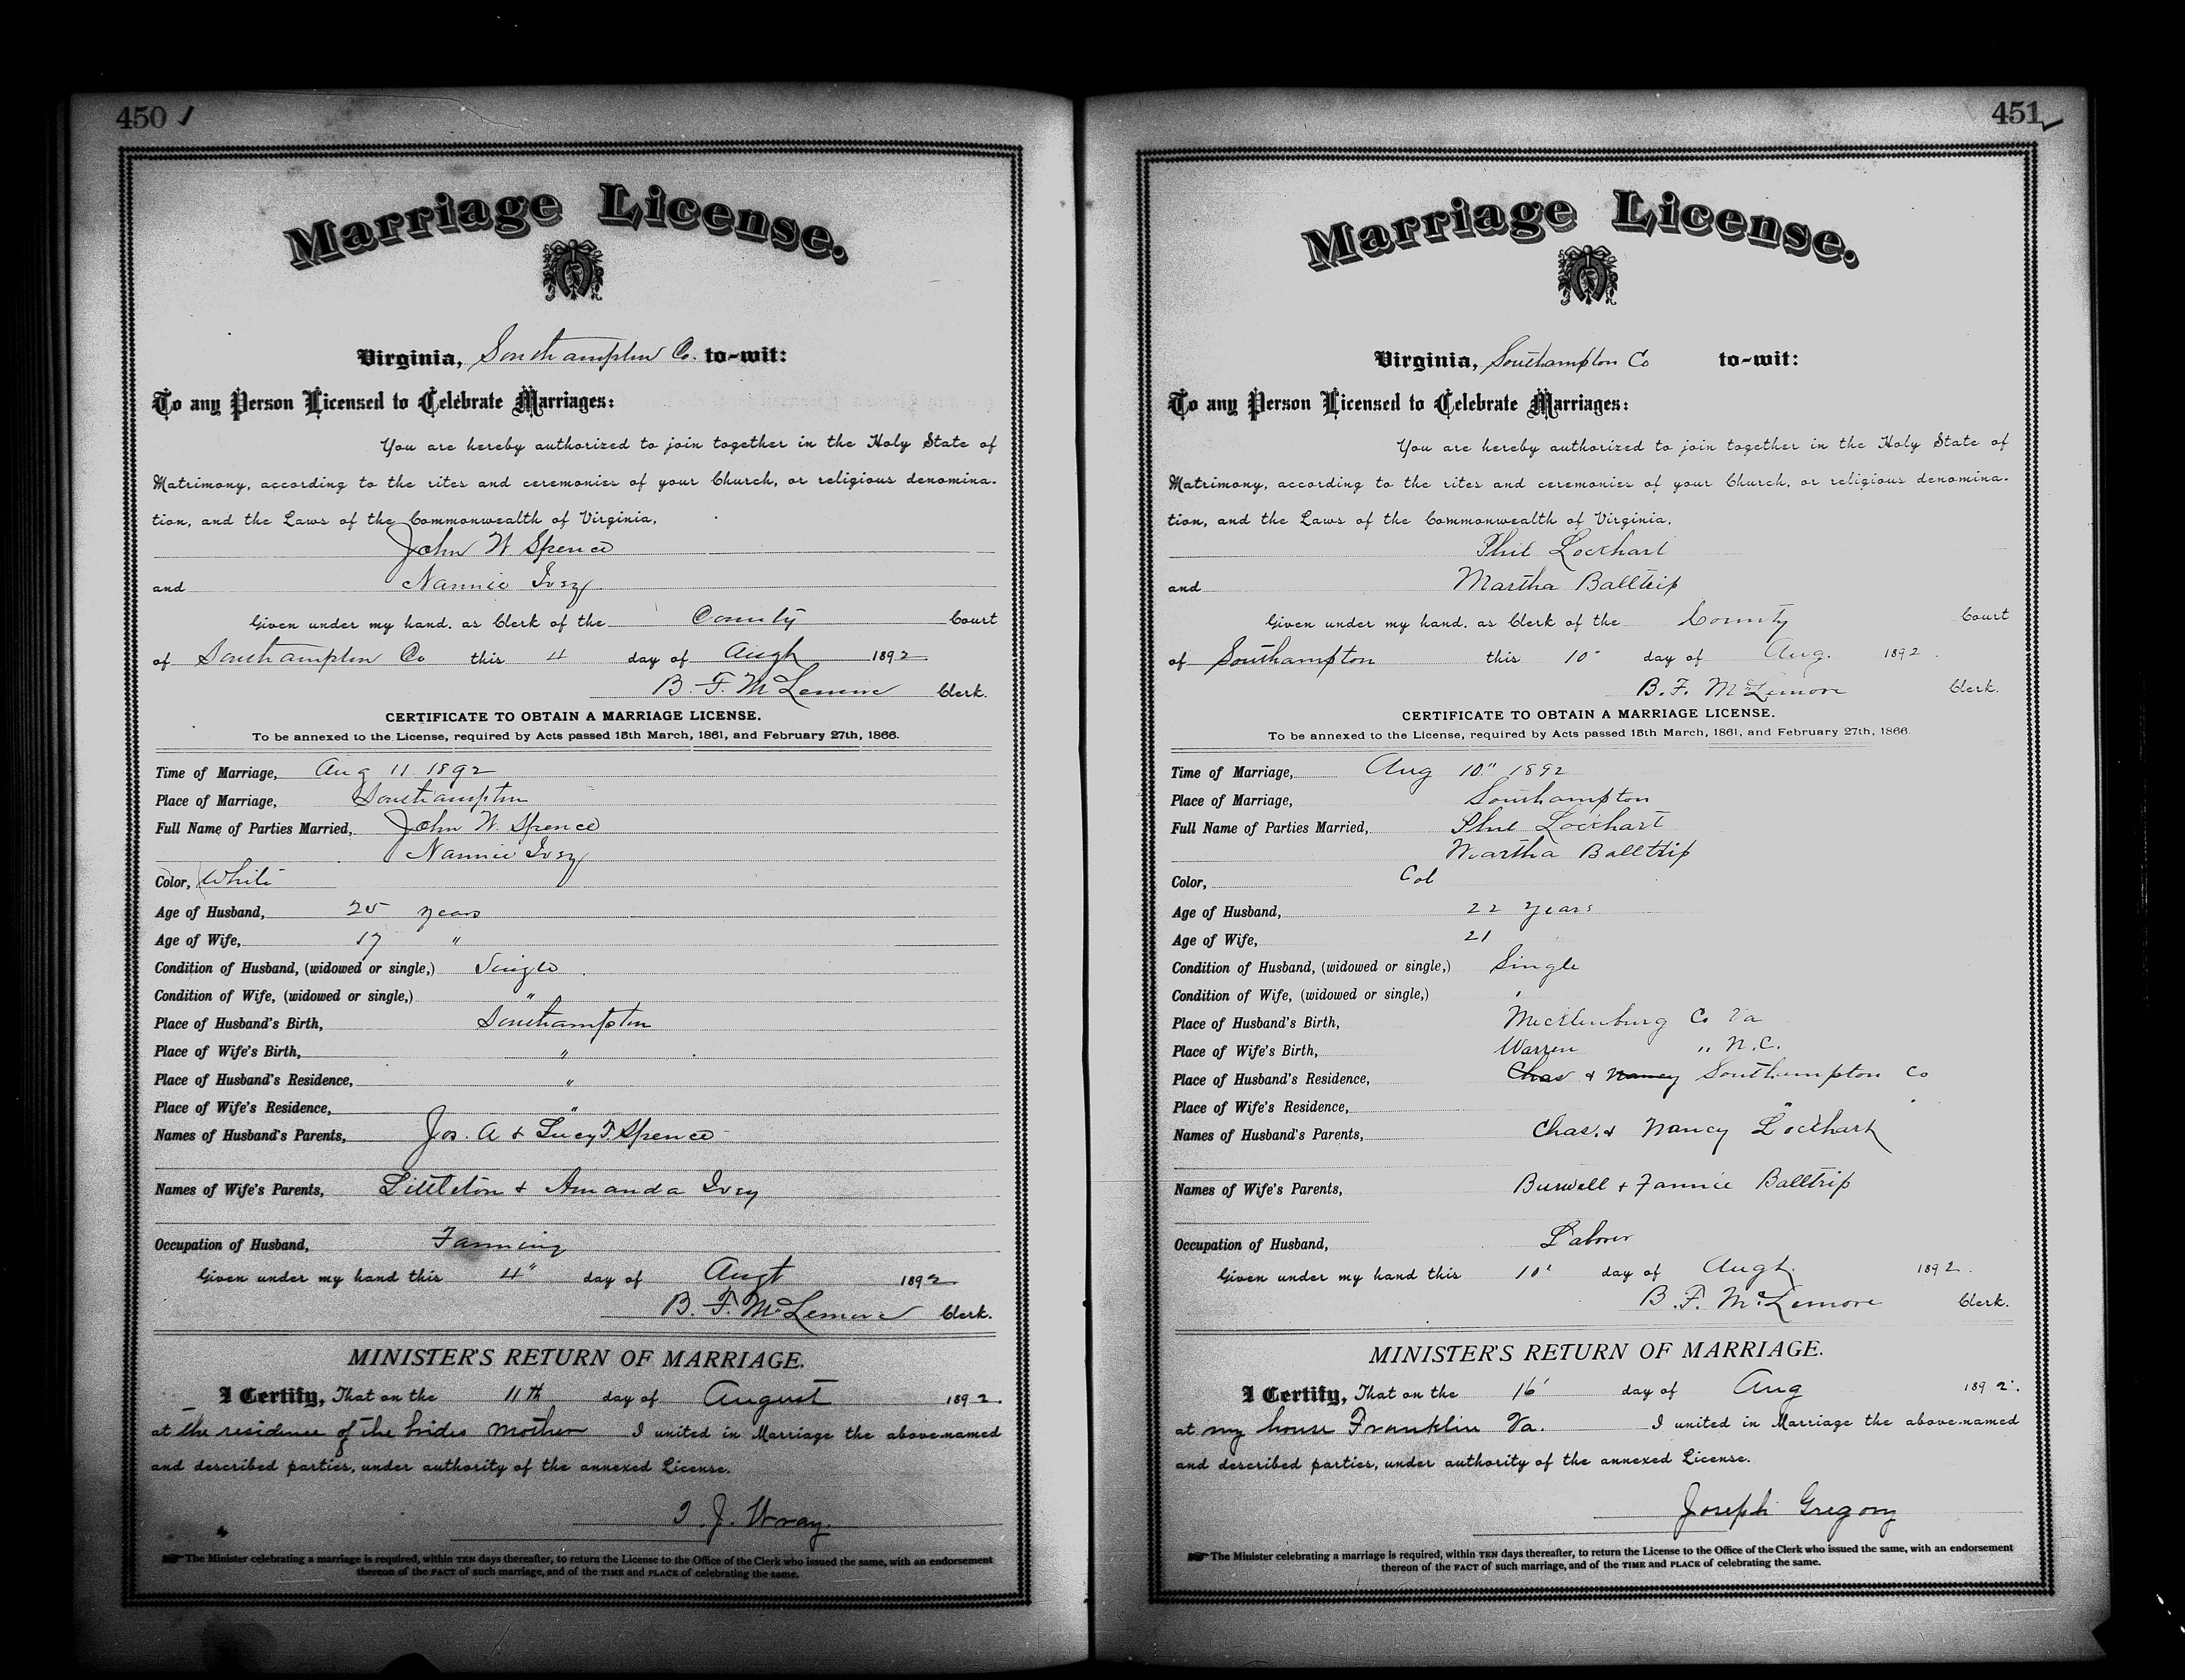 450 ✓
Marriage License.
Virginia, Southampton Co. to-wit:
To any Person Licensed to Celebrate Marriages:
You are hereby authorized to join together in the Holy State of
Matrimony, according to the rites and ceremonies of your Church, or religious denomina-
tion, and the Laws of the Commonwealth of Virginia,
John W Spence
and Nannie Ivey
Given under my hand, as Clerk of the County Court
of Southampton Co this 4 day of Augt 1892.
B. F. McLemore Clerk.
CERTIFICATE TO OBTAIN A MARRIAGE LICENSE.
To be annexed to the License, required by Acts passed 15th March, 1861, and February 27th, 1866.
Time of Marriage, Aug 11 1892
Place of Marriage, Southampton
Full Name of Parties Married, John W. Spence
Nannie Ivey
Color, White
Age of Husband, 25 years
Age of Wife, 17 "
Condition of Husband, (widowed or single,) Single
Condition of Wife, (widowed or single,) "
Place of Husband's Birth, Southampton
Place of Wife's Birth, "
Place of Husband's Residence, "
Place of Wife's Residence, "
Names of Husband's Parents, Jos. A & Lucy F Spence
Names of Wife's Parents, Littleton & Amanda Ivey
Occupation of Husband, Farming
Given under my hand this 4" day of Augt 1892
B. F. McLemore Clerk.
MINISTER'S RETURN OF MARRIAGE.
I Certify, That on the 11th day of August 1892.
at the residence of the brides mother I united in Marriage the above-named
and described parties, under authority of the annexed License.
J. Wray.
The Minister celebrating a marriage is required, within TEN days thereafter, to return the License to the Office of the Clerk who issued the same, with an endorsement
thereon of the FACT of such marriage, and of the TIME and PLACE of celebrating the same.
451 ✓
Marriage License.
Virginia, Southampton Co to-wit:
To any Person Licensed to Celebrate Marriages:
You are hereby authorized to join together in the Holy State of
Matrimony, according to the rites and ceremonies of your Church, or religious denomina-
tion, and the Laws of the Commonwealth of Virginia,
Phil Lockhart
and Martha Balltrip
Given under my hand, as Clerk of the County Court
of Southampton this 10" day of Aug. 1892.
B. F. McLemore Clerk.
CERTIFICATE TO OBTAIN A MARRIAGE LICENSE.
To be annexed to the License, required by Acts passed 15th March, 1861, and February 27th, 1866.
Time of Marriage, Aug 10" 1892
Place of Marriage, Southampton
Full Name of Parties Married, Phil Lockhart
Martha Balltrip
Color, Col
Age of Husband, 22 years
Age of Wife, 21
Condition of Husband, (widowed or single,) Single
Condition of Wife, (widowed or single,) '
Place of Husband's Birth, Mecklenburg Co Va
Place of Wife's Birth, Warren " N.C.
Place of Husband's Residence, Chas & Nancy Southampton Co
Place of Wife's Residence, "
Names of Husband's Parents, Chas. & Nancy Lockhart
Names of Wife's Parents, Burwell & Fannie Balltrip
Occupation of Husband, Laborer
Given under my hand this 10' day of Augt. 1892.
B. F. McLemore Clerk.
MINISTER'S RETURN OF MARRIAGE.
I Certify, That on the 16' day of Aug 1892.
at my house Franklin Va. I united in Marriage the above-named
and described parties, under authority of the annexed License.
Joseph Gregory
The Minister celebrating a marriage is required, within TEN days thereafter, to return the License to the Office of the Clerk who issued the same, with an endorsement
thereon of the FACT of such marriage, and of the TIME and PLACE of celebrating the same.